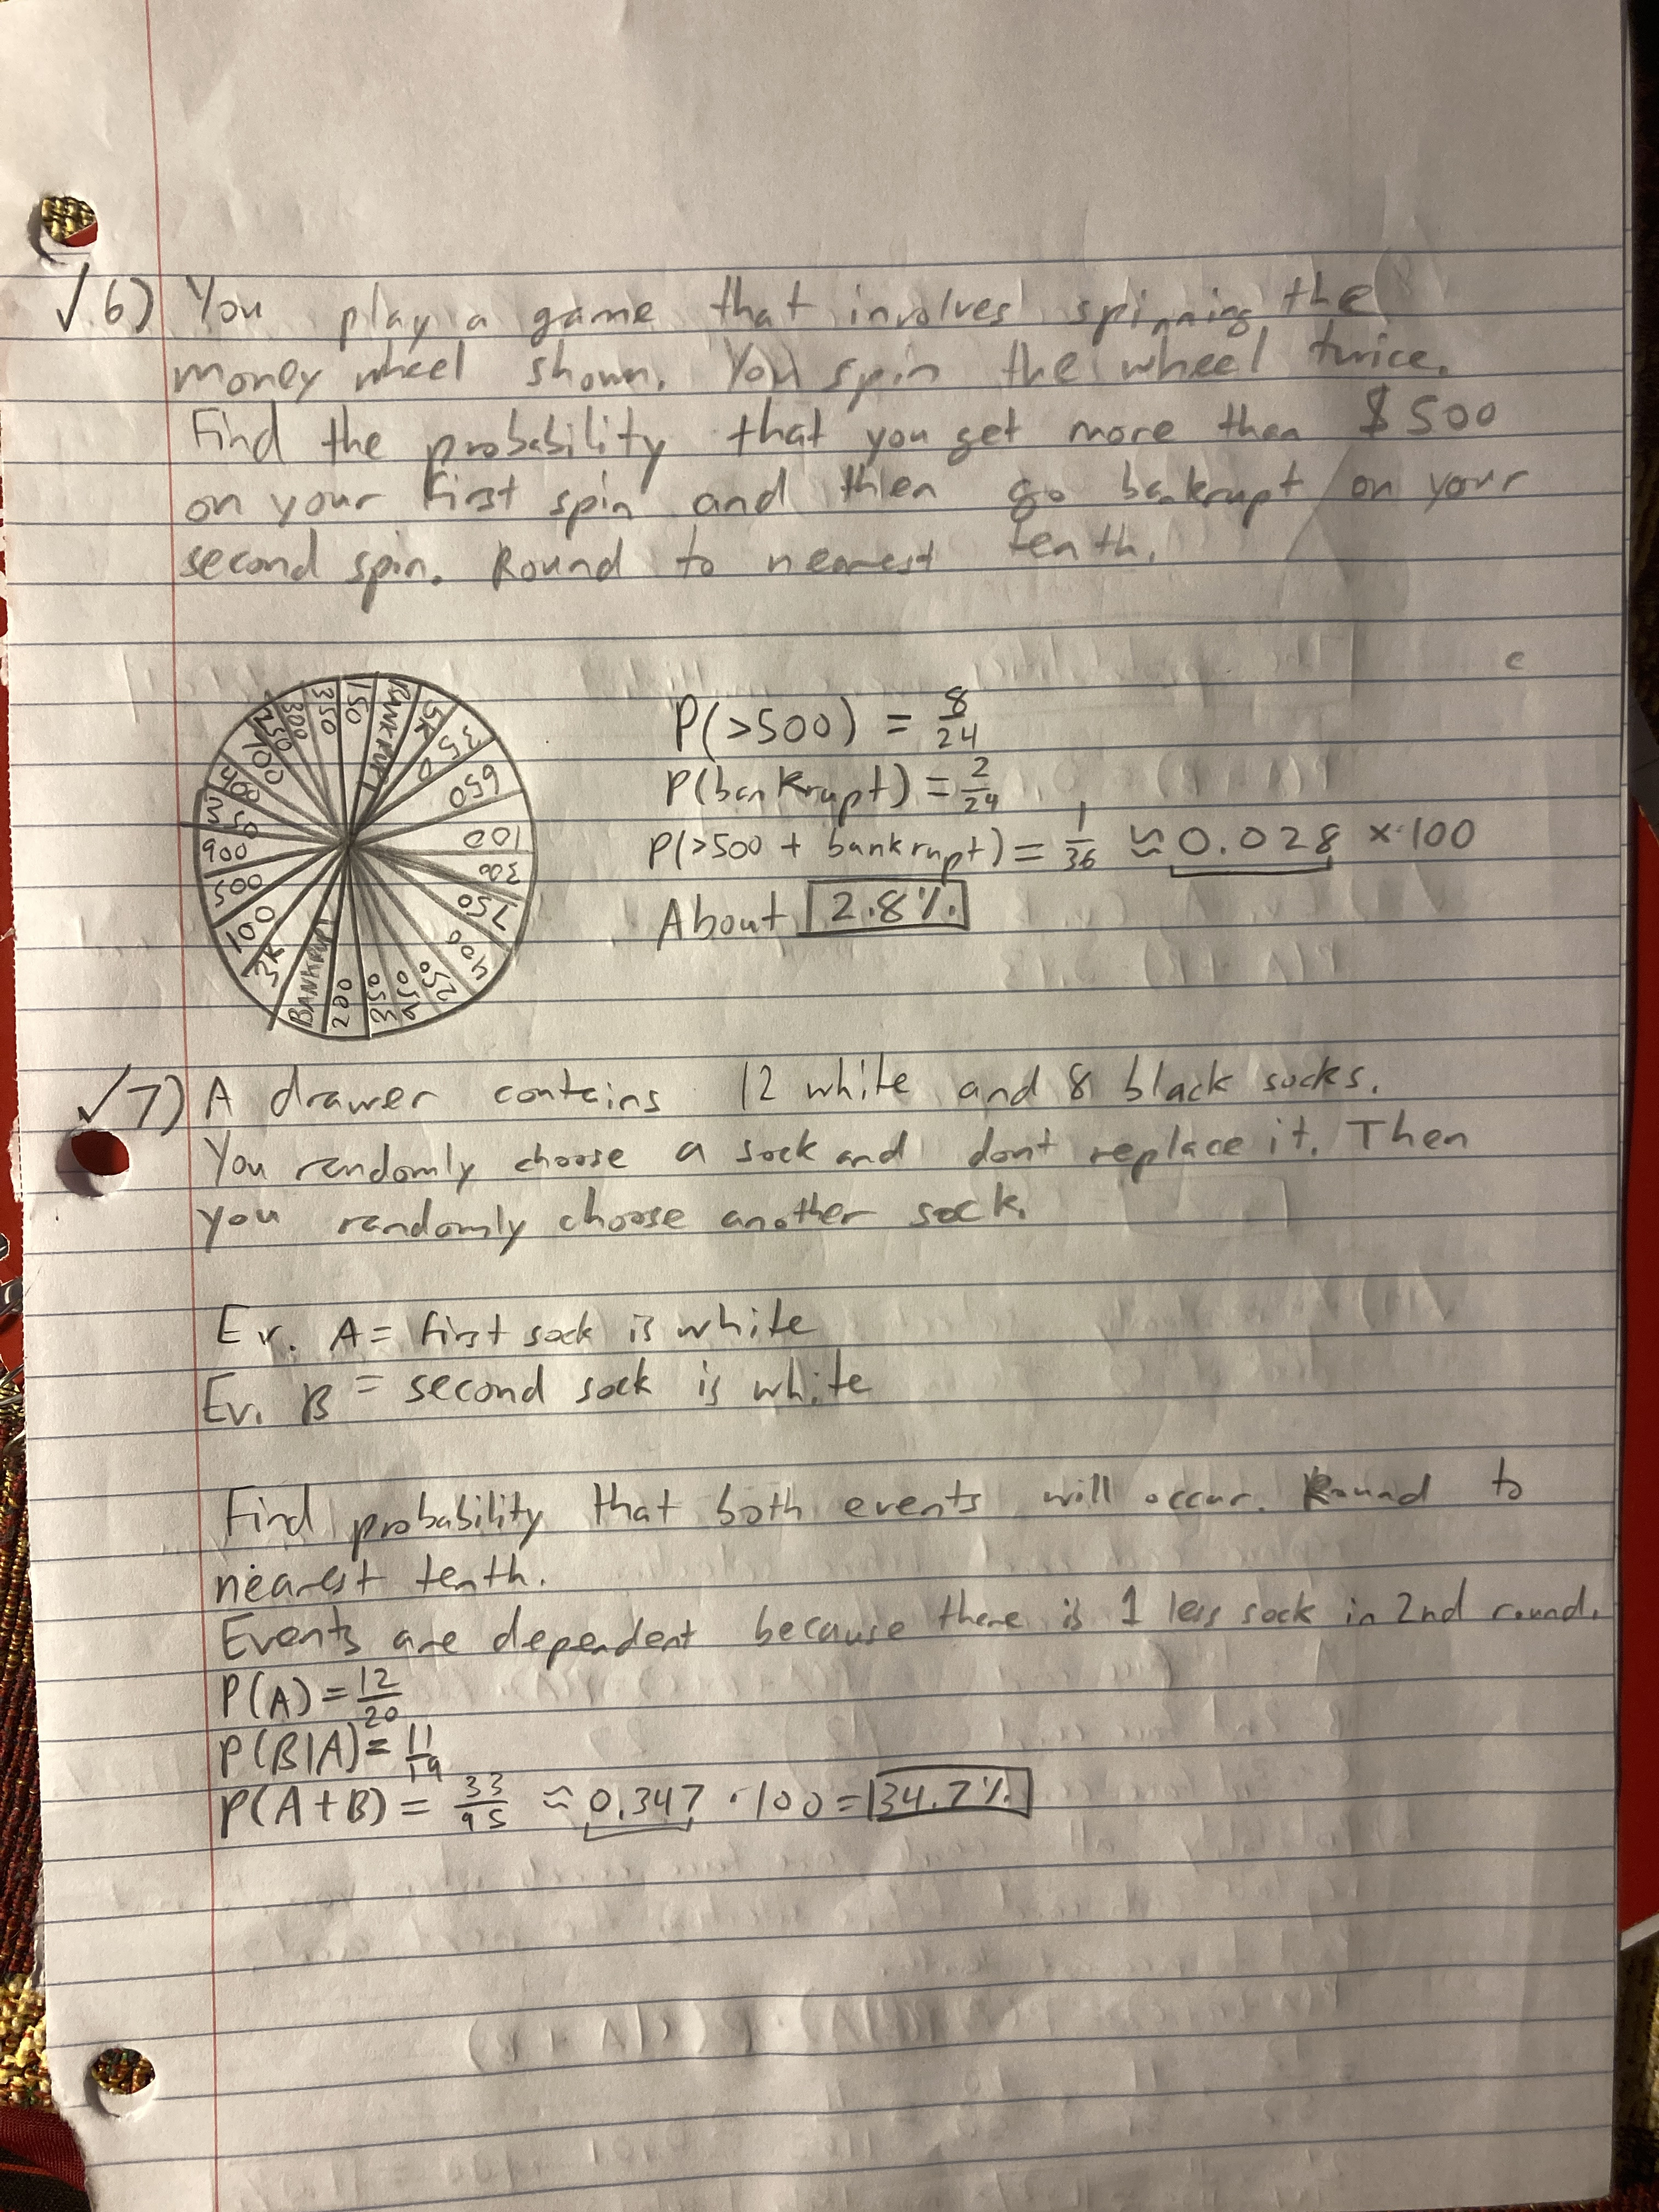 √ 6) You play a game that involves spinning the
money wheel shown. You spin the wheel twice.
Find the probability that you get more then $500
on your first spin and then go bankrupt on your
second spin. Round to nearest tenth.
150
BANKRUPT
5K
350
650
100
300
750
400
250
350
200
BANKRUPT
3K
100
500
900
400
300
350
P(>500) = 8/24
P(bankrupt) = 2/24
P(>500 + bankrupt) = 1/36 ≈ 0.028 × 100
About 2.8%.
√ 7) A drawer contains 12 white and 8 black socks.
You randomly choose a sock and dont replace it. Then
you randomly choose another sock.
Ev. A = first sock is white
Ev. B = second sock is white
Find probability that both events will occur. Round to
nearest tenth.
Events are dependent because there is 1 less sock in 2nd round.
P(A) = 12/20
P(B|A) = 11/19
P(A+B) = 33/95 ≈ 0.347 · 100 = 34.7%